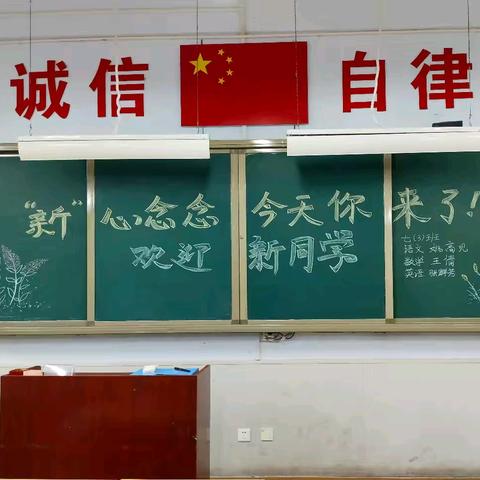 诚信 自律
"新"心念念 今天你来了!
欢迎新同学
七(3)班
语文 姚高见
数学 王倩
英语